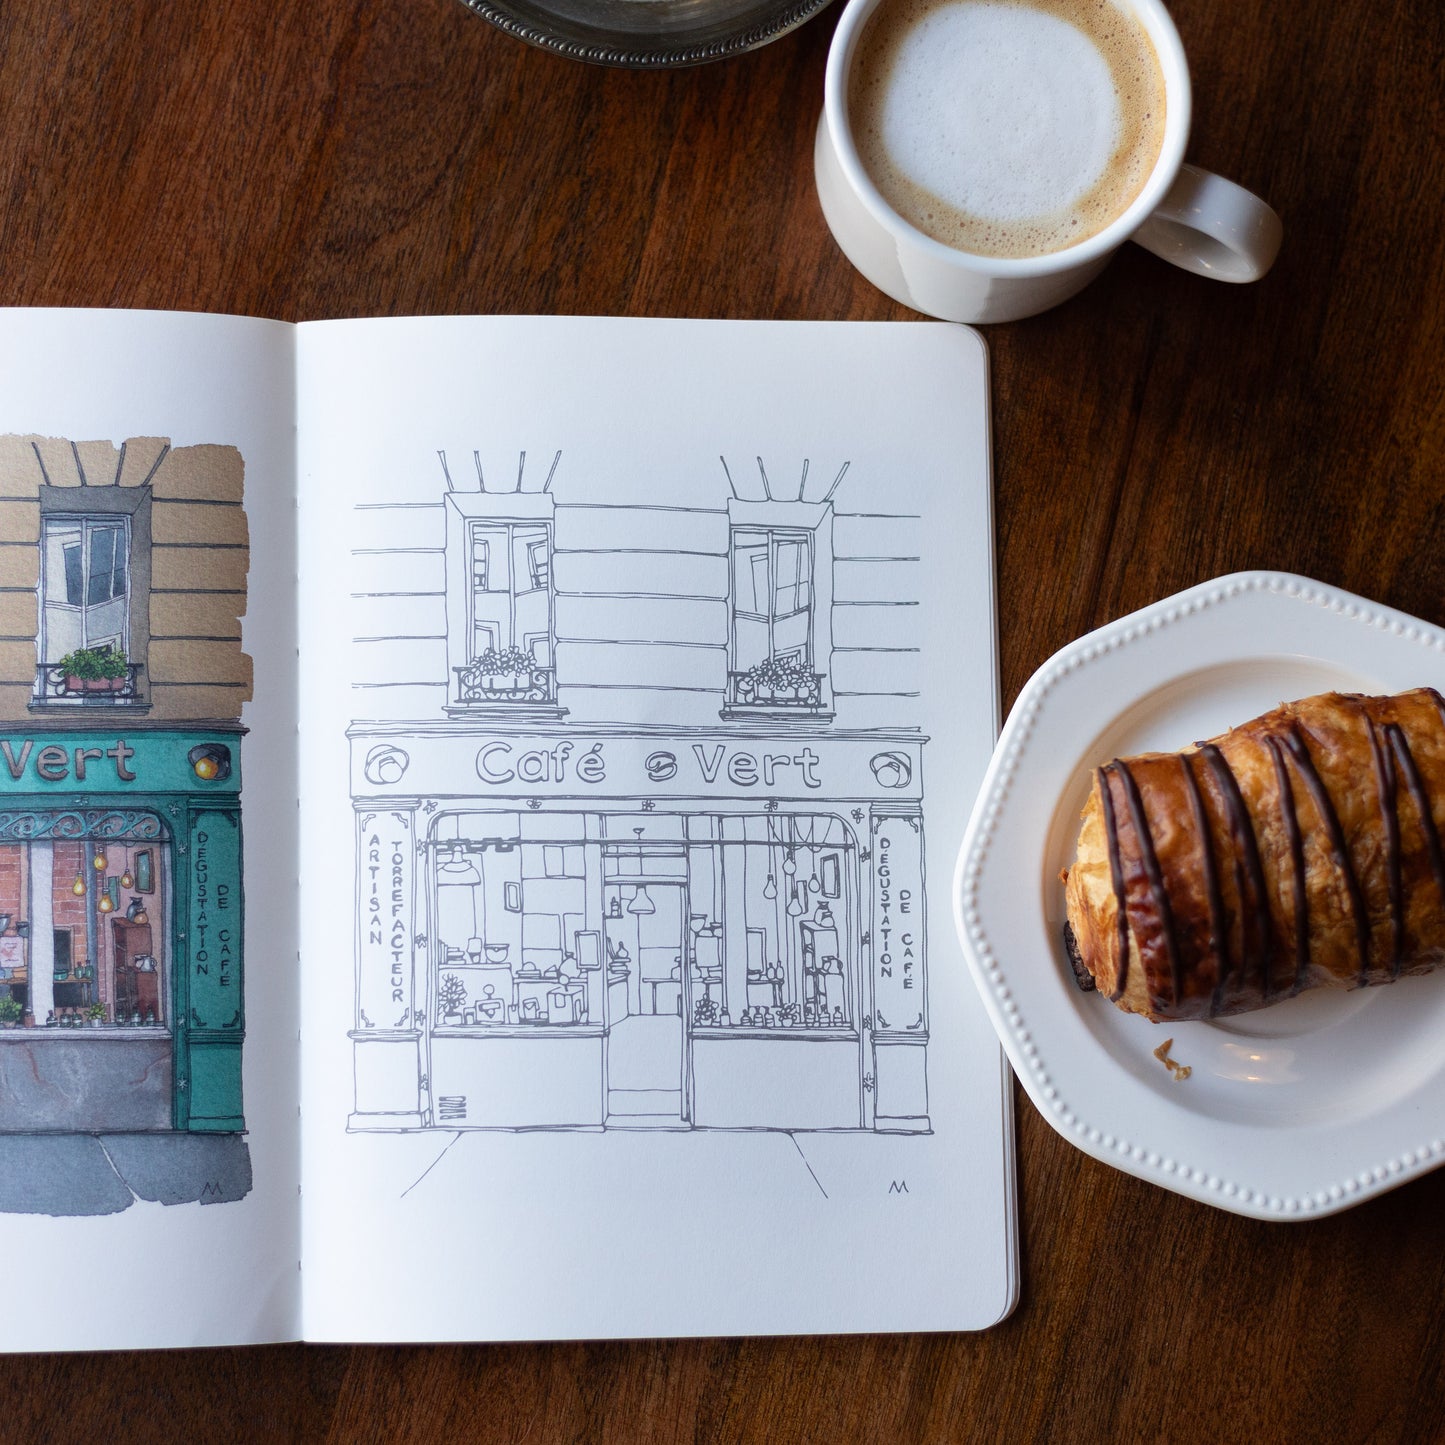 Vert
DÉGUSTATION
DE CAFÉ
M
Café Vert
ARTISAN
TORREFACTEUR
DÉGUSTATION
DE CAFÉ
M